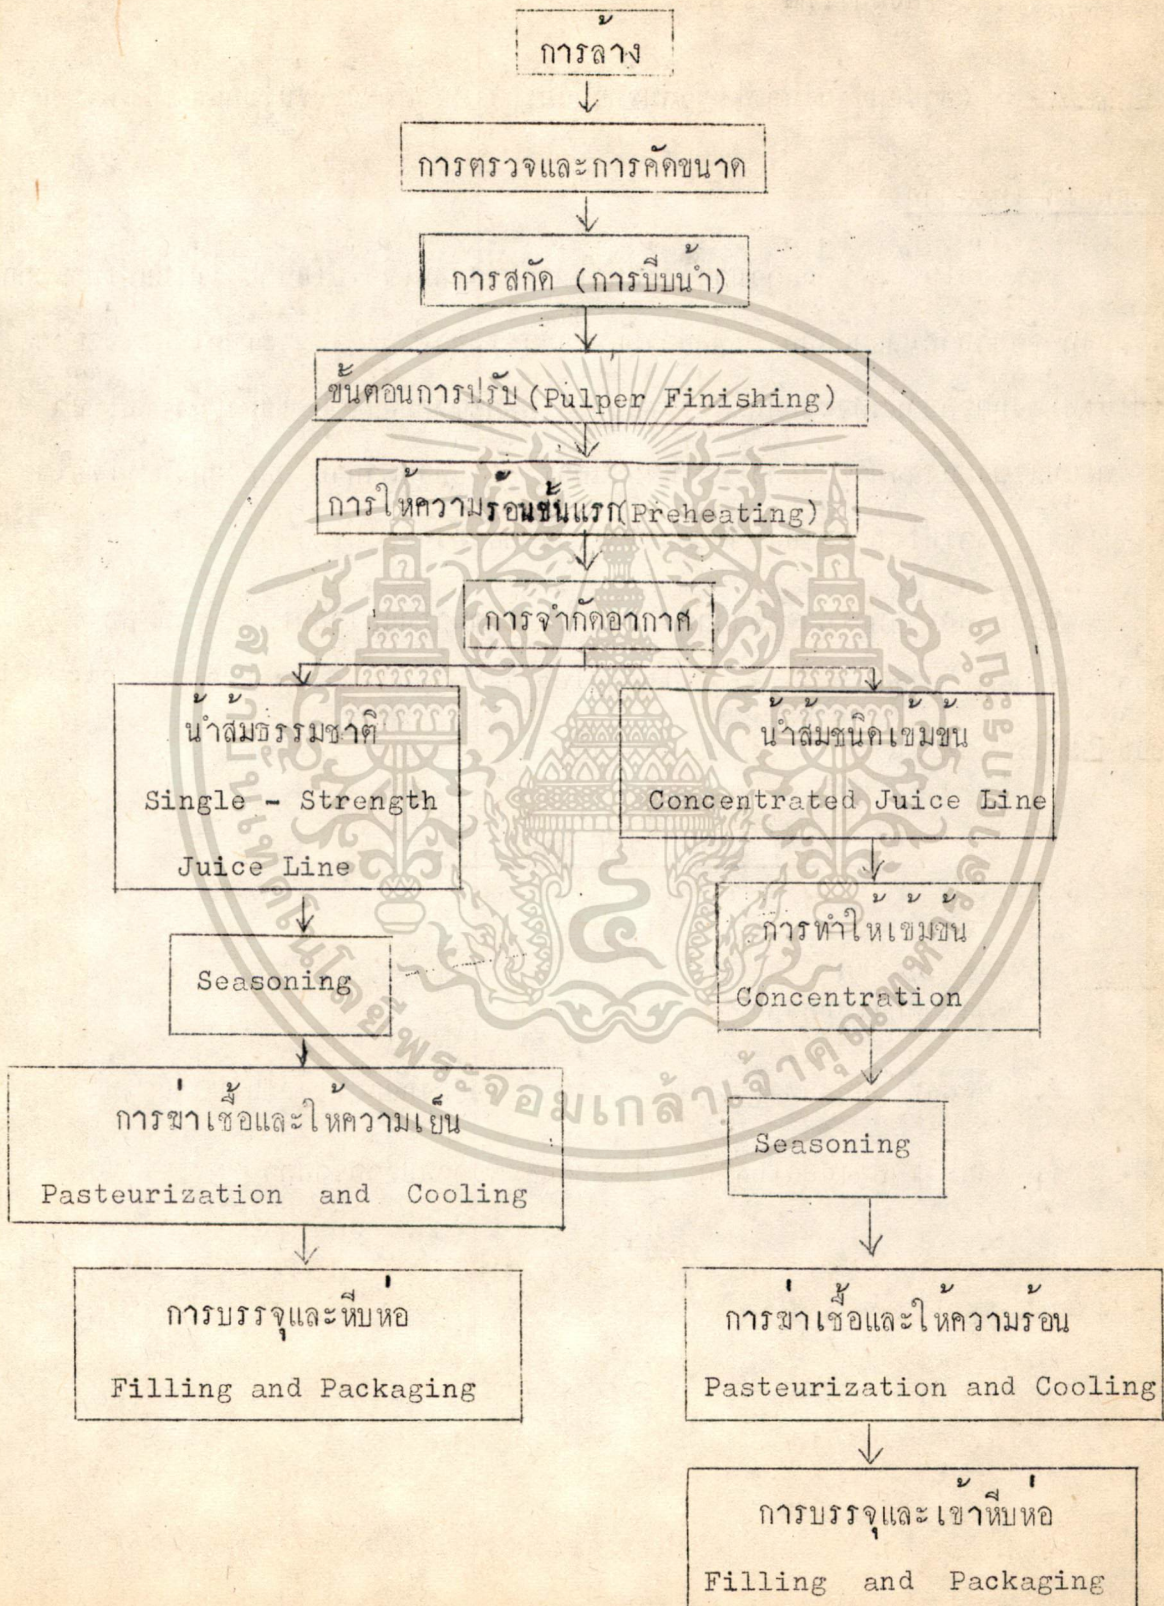 การล้าง
การตรวจและการคัดขนาด
การสกัด (การบีบน้ำ)
ขั้นตอนการปรับ (Pulper Finishing)
การให้ความร้อนขั้นแรก (Preheating)
การจำกัดอากาศ
น้ำส้มธรรมชาติ
Single - Strength
Juice Line
Seasoning
การฆ่าเชื้อและให้ความเย็น
Pasteurization and Cooling
การบรรจุและหีบห่อ
Filling and Packaging
น้ำส้มชนิดเข้มข้น
Concentrated Juice Line
การทำให้เข้มข้น
Concentration
Seasoning
การฆ่าเชื้อและให้ความร้อน
Pasteurization and Cooling
การบรรจุและเข้าหีบห่อ
Filling and Packaging
สถาบันเทคโนโลยีพระจอมเกล้าเจ้าคุณทหารลาดกระบัง